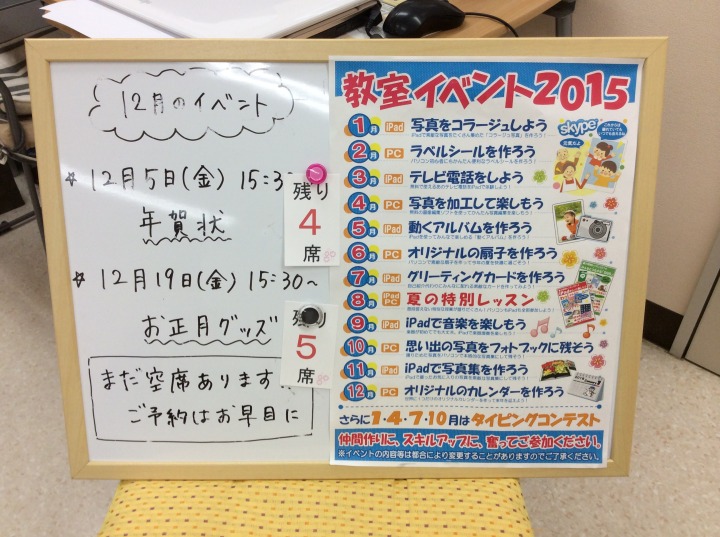 12月のイベント
☆ 12月5日(金) 15:3
年賀状
残り
4
席
☆ 12月19日(金) 15:30~
お正月グッズ
残
5
席
まだ空席あります
ご予約はお早目に
教室イベント2015
1月 iPad 写真をコラージュしよう
2月 PC ラベルシールを作ろう
3月 iPad テレビ電話をしよう
4月 PC 写真を加工して楽しもう
5月 iPad 動くアルバムを作ろう
6月 PC オリジナルの扇子を作ろう
7月 iPad グリーティングカードを作ろう
8月 iPad PC 夏の特別レッスン
9月 iPad iPadで音楽を楽しもう
10月 PC 思い出の写真をフォトブックに残そう
11月 iPad iPadで写真集を作ろう
12月 PC オリジナルのカレンダーを作ろう
skype
元気だよ
さらに1・4・7・10月はタイピングコンテスト
仲間作りに、スキルアップに、奮ってご参加ください。
※イベントの内容等は都合により変更することがありますのでご了承ください。